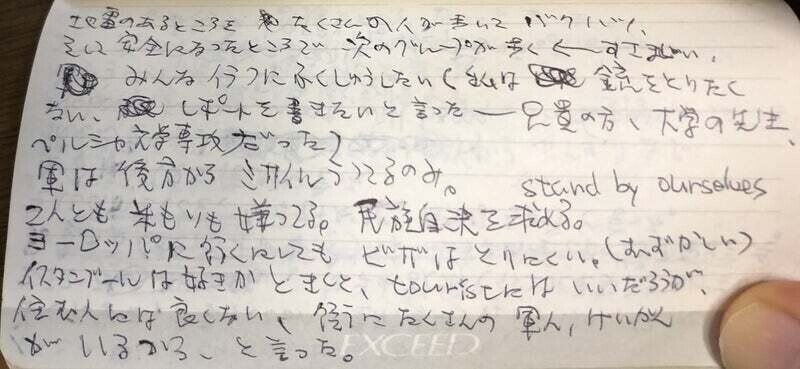 地雷のあるところを たくさんの人が歩いて バクハツ、
そして安全になったところで 次のグループが歩く ← すさまじい、
みんな イラクにふくしゅうしたい（私は 銃をとりたく
ない、 レポートを書きたいと言った ー 兄貴の方、大学の先生、
ペルシャ文学専攻だった）
軍は後方から ミサイルうってるのみ。 stand by ourselves
2人とも 米もソも嫌ってる。民族自決を求める。
ヨーロッパに行くにしても ビザはとりにくい。（むずかしい）
イスタンブールは好きかときくと、touristにはいいだろうが、
住む人には良くない、街うにたくさんの 軍人、けいかん
がいるから、と言った。
EXCEED